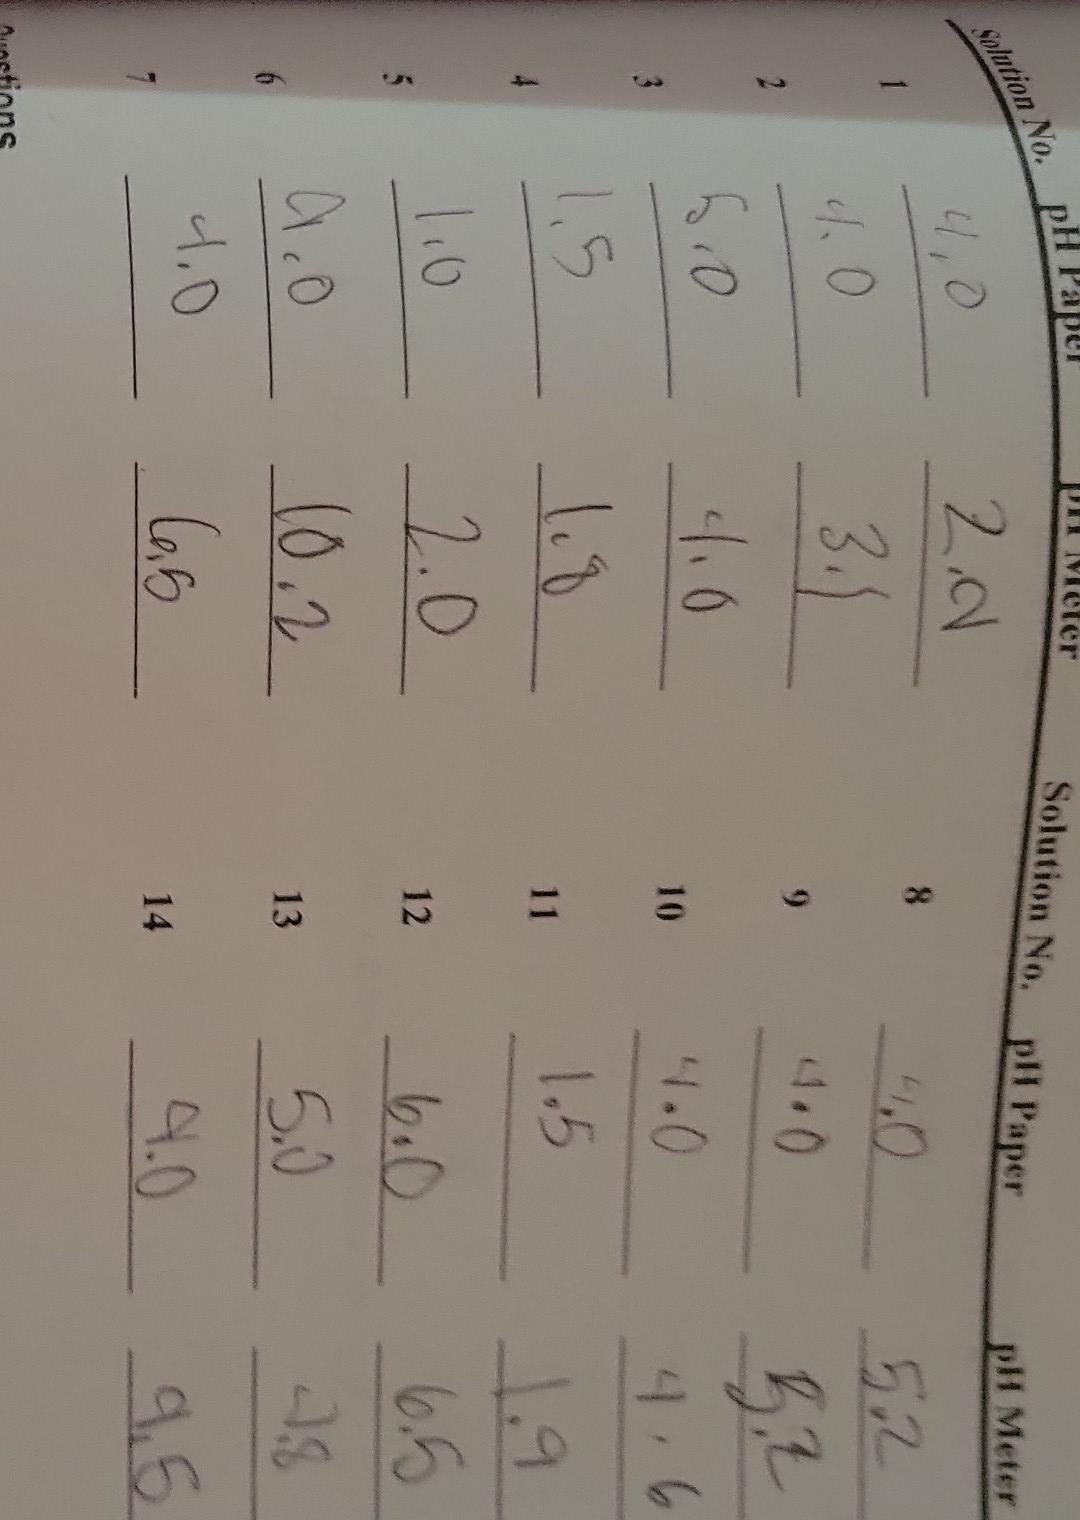 Solution No. pH Paper pH Meter Solution No. pH Paper pH Meter
1 4.0 2.2 8 4.0 5.2
2 4.0 3.1 9 4.0 5.2
3 5.0 4.6 10 4.0 4.6
4 1.5 1.8 11 1.5 1.9
5 1.0 2.0 12 6.0 6.5
6 9.0 10.2 13 5.0 4.8
7 4.0 6.5 14 9.0 9.5
Questions